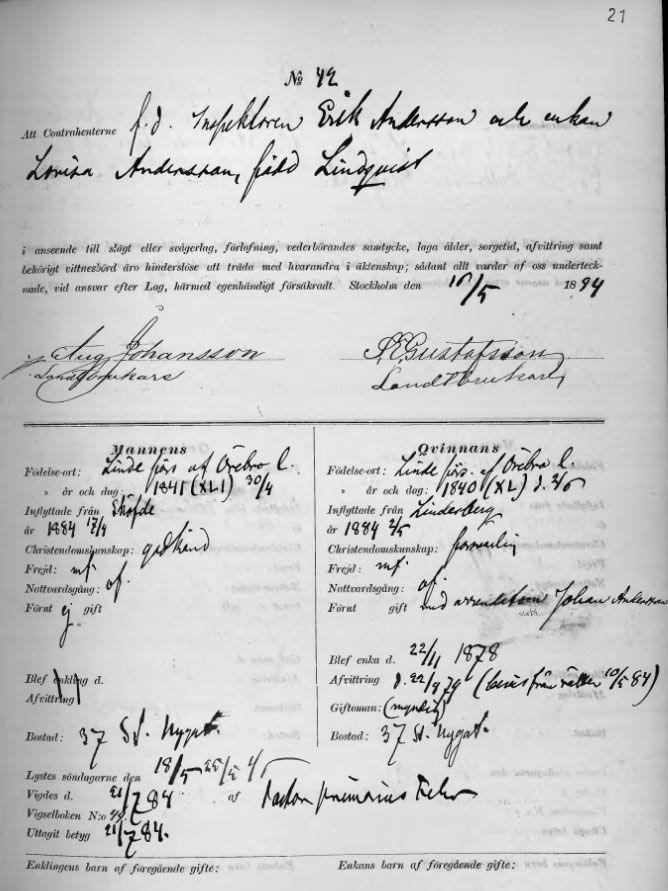 21
No 42
Att Contrahenterne f.d. Inspektoren Erik Andersson och enkan
Lovisa Andersson, född Lindqvist
i anseende till slägt eller svågerlag, förlofning, vederbörandes samtycke, laga ålder, sorgetid, afvittring samt
behörigt vittnesbörd äro hinderslöse att träda med hvarandra i äktenskap; sådant allt varder af oss underteck-
nade, vid ansvar efter Lag, härmed egenhändigt försäkradt. Stockholm den 16/5 1884
Aug Johansson
Landtbrukare
Gustafsson
Landtbrukare
Mannens
Födelse-ort: Linde förs af Örebro l.
" år och dag: 1841 (XLI) 30/4
Inflyttade från Sköfde
år 1884 17/4
Christendomskunskap: godkänd
Frejd:
Nattvardsgång: af.
Förut ej gift
Blef enkling d.
Afvittring
Bostad: 37 St. Nygat.
Qvinnans
Födelse-ort: Linde förs. af Örebro l.
" år och dag: 1840 (XL) d.
Inflyttade från Linderberg
år 1884 2/5
Christendomskunskap: försvarlig
Frejd:
Nattvardsgång: af.
Förut gift med Johan Andersson
Blef enka d. 22/11 1878
Afvittring d. 22/9 79 (bevis från 10/5 84)
Giftoman: (myndig)
Bostad: 37 St. Nygat.
Lystes söndagarne den 18/5 25/5
Vigdes d. 21/7 84 af Pastor primarius Fehr
Vigselboken N:o
Uttagit betyg 21/7 84.
Enklingens barn af föregående gifte:
Enkans barn af föregående gifte: